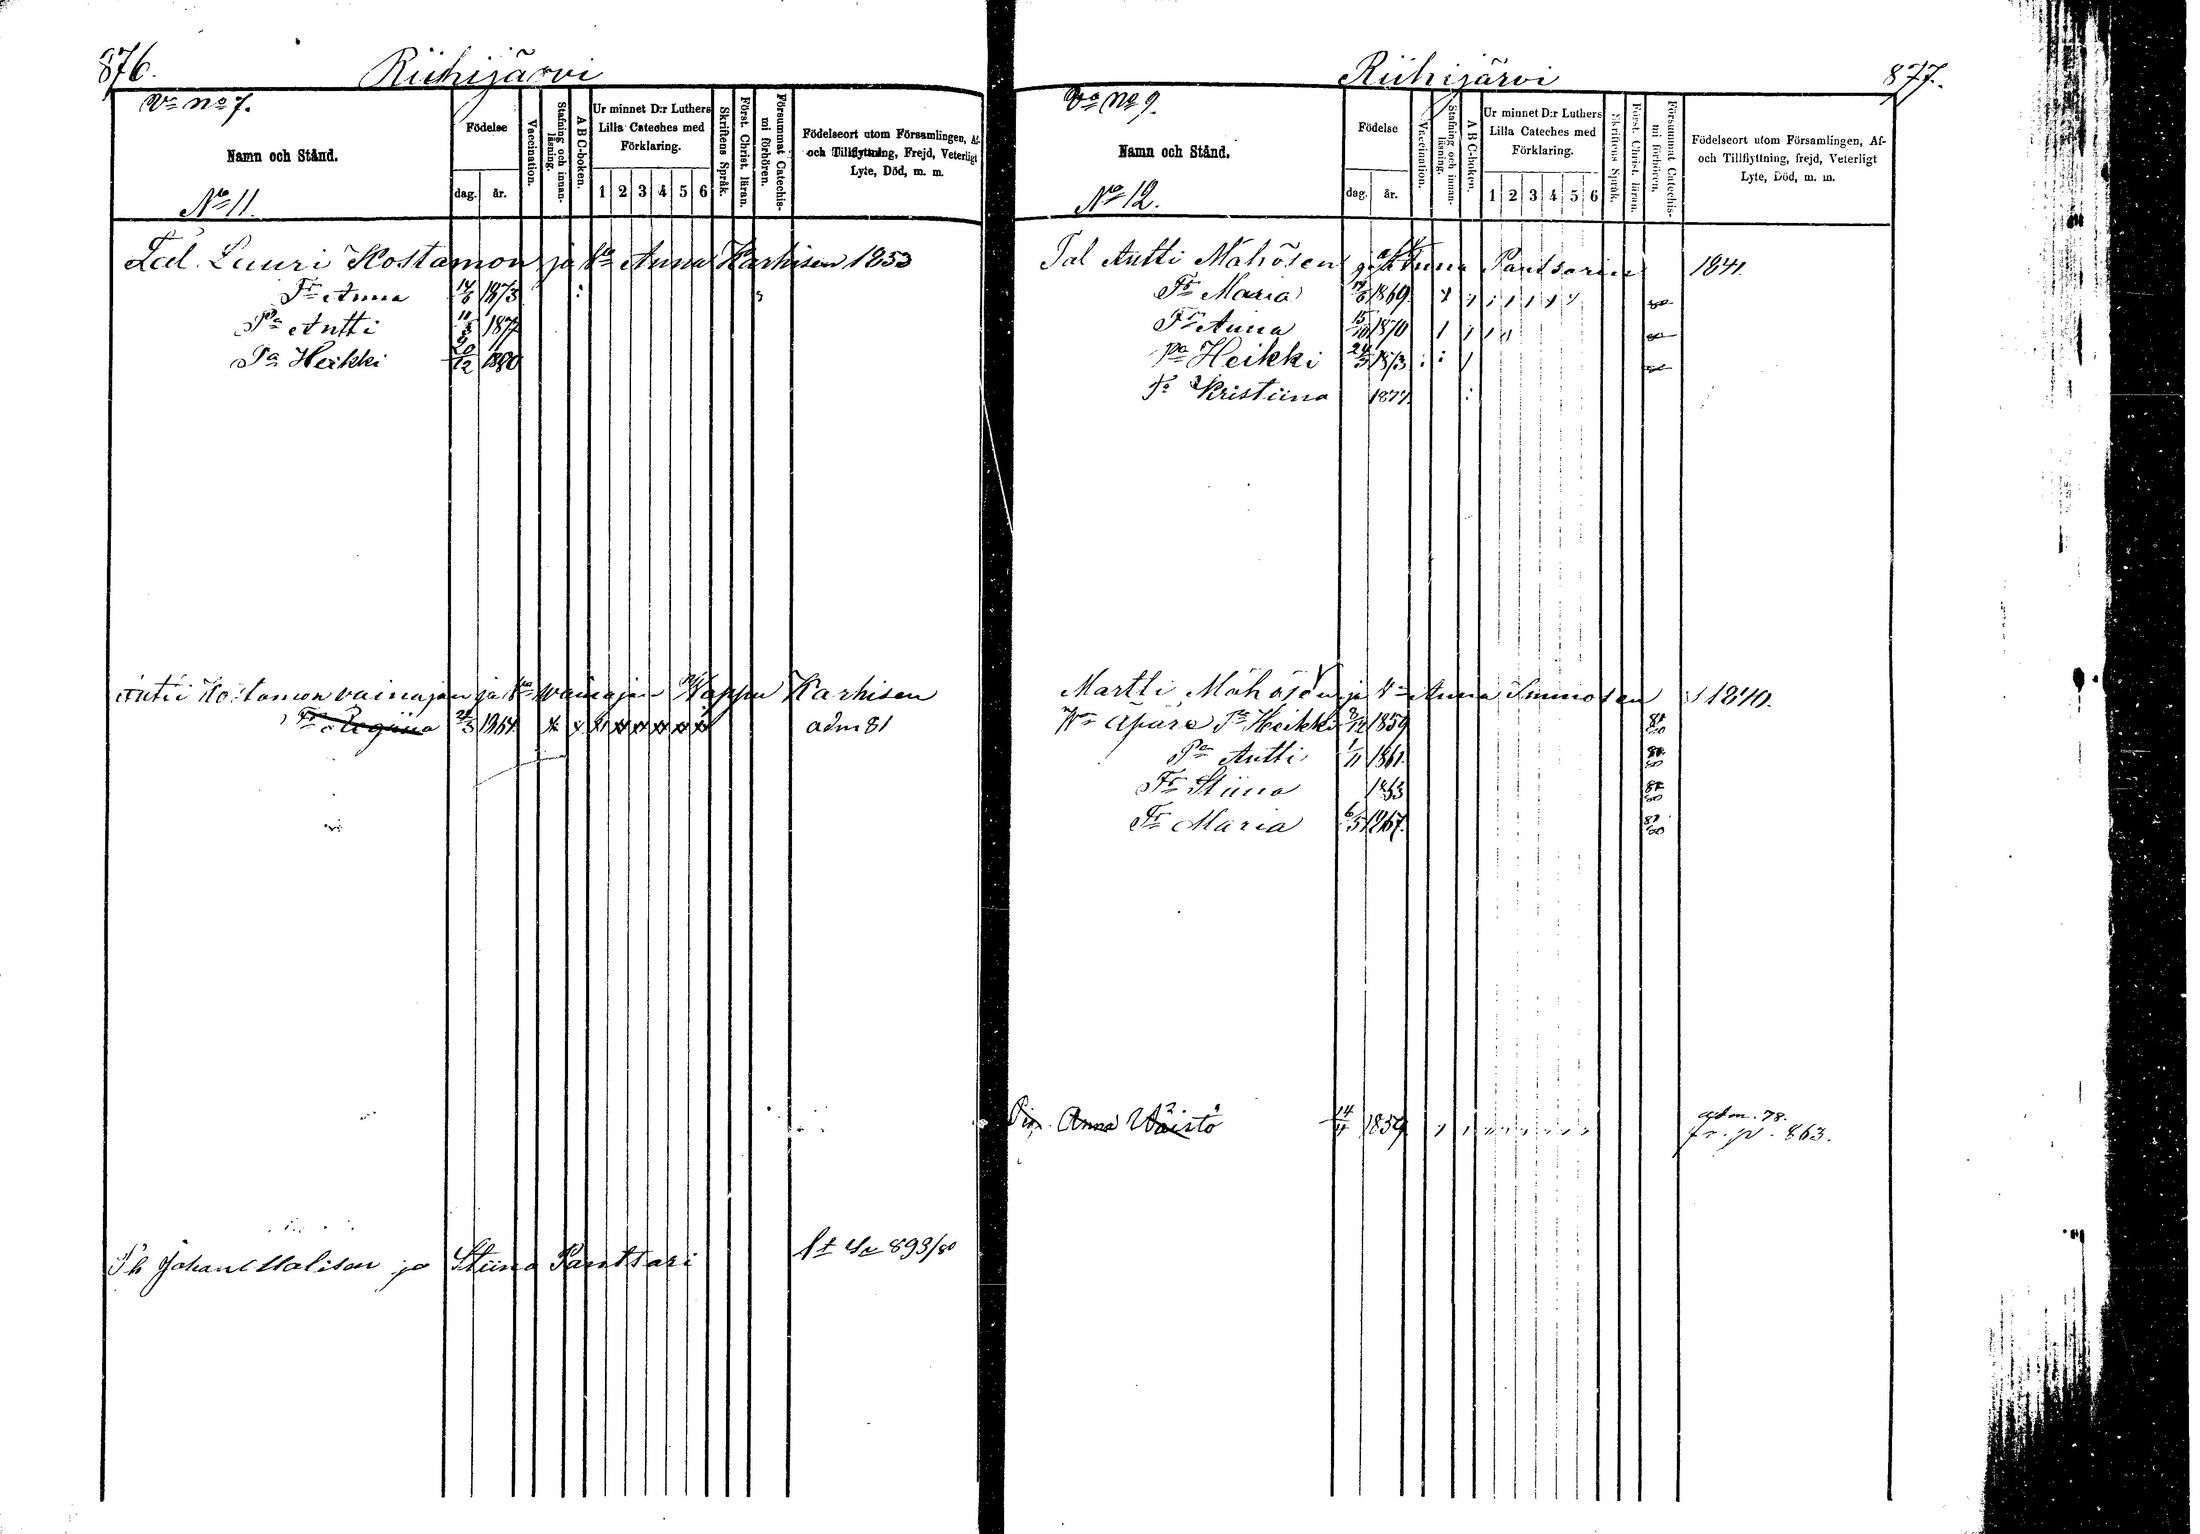 876.
Riihijärvi
Vo No 7.
Namn och Stånd.
No 11.
Födelse
dag. år.
Vaccination.
Stafning och innan-läsning.
A B C-boken.
Ur minnet D:r Luthers
Lilla Cateches med
Förklaring.
1 2 3 4 5 6
Skriftens Språk.
Först. Christ. läran.
Försummat Catechis-mi förhören.
Födelseort utom Församlingen, Af-
och Tillflyttning, Frejd, Veterligt
Lyte, Död, m. m.
Tal. Lauri Kostamon ja Va Anna Karhisen 1853
Tr Anna 14/6 1873
Pa Antti 11/3 1877
Pa Heikki 20/12 1880
Antti Kostamon vainajan ja Va vainajan Wappu Karhisen
Tr Regiina 1864 adm 81
Johan Malisen ja Stiina Panttari 893/80
Riihijärvi
877.
Vo No 9.
Namn och Stånd.
No 12.
Födelse
dag. år.
Vaccination.
Stafning och innan-läsning.
A B C-boken.
Ur minnet D:r Luthers
Lilla Cateches med
Förklaring.
1 2 3 4 5 6
Skriftens Språk.
Först. Christ. läran.
Försummat Catechis-mi förhören.
Födelseort utom Församlingen, Af-
och Tillflyttning, frejd, Veterligt
Lyte, Död, m. m.
Tal Antti Mähösen ja Va Anna 1841.
Tr Maria 1869
Tr Anna 15/10 1870
Pa Heikki 24/3 1873
Tr Kristiina 1877
Martti Mähösen ja Va Anna Immosen 1840.
Äpärä Pa Heikki 1859
Pa Antti 1/11 1861.
Tr Stiina 1863
Tr Maria 6/5 1867.
Anna Wäistö 1859 adm. 78.
fr. p. 863.